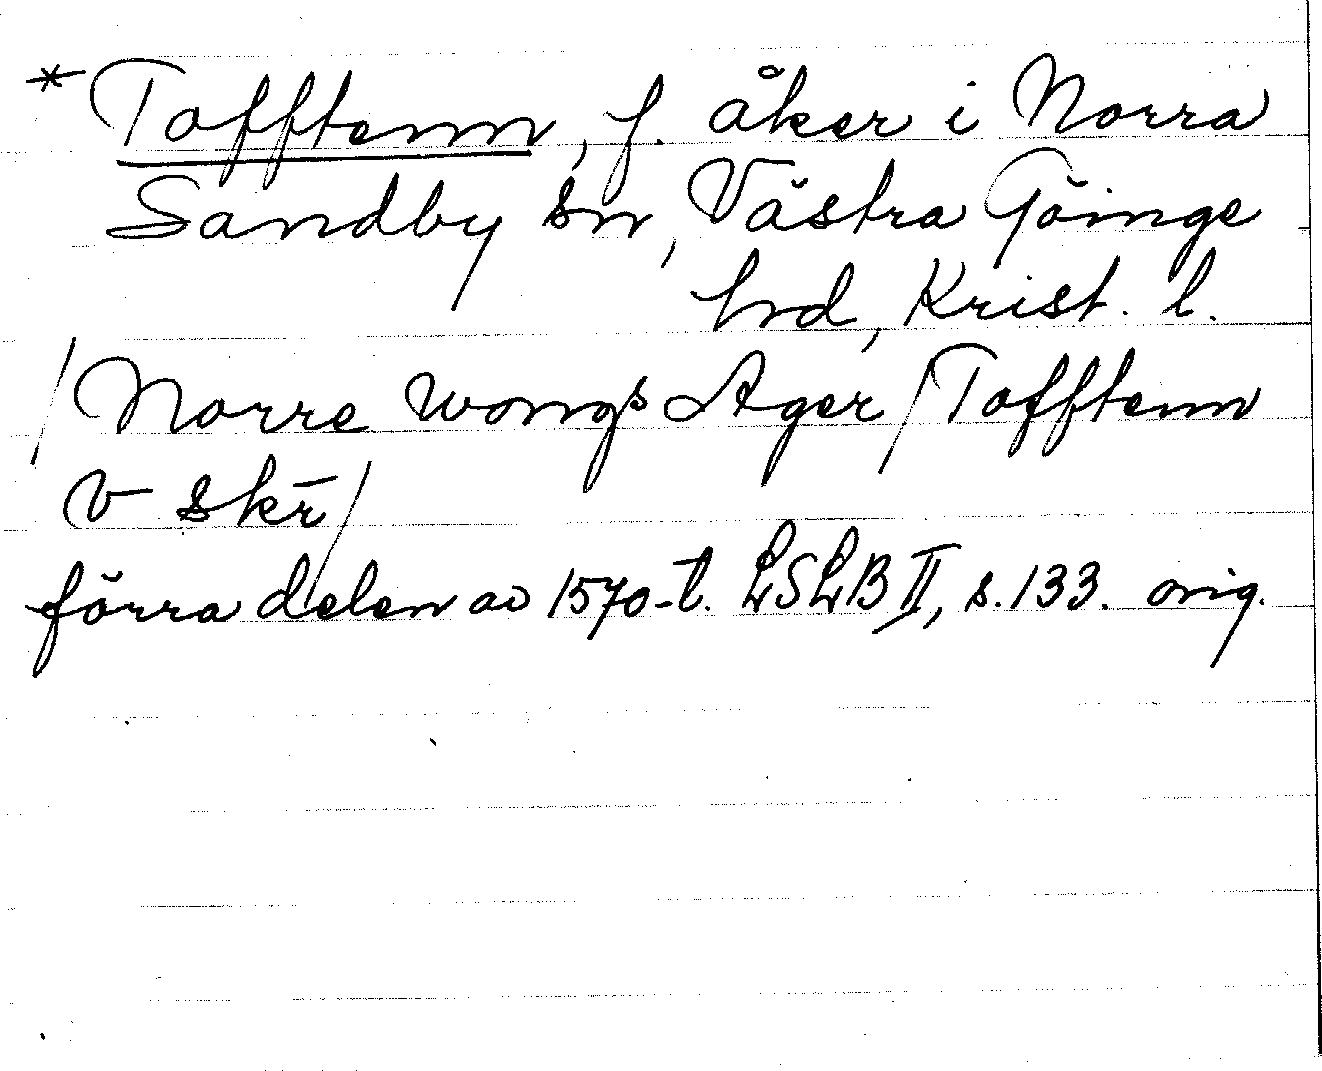 * Tofftenn, f. åker i Norra
Sandby sn, Västra Göinge
hrd, Krist. l.
/ Norre wongs Ager / Tofftenn
V skr̄ /
förra delen av 1570-t. LSLB II, s. 133. orig.